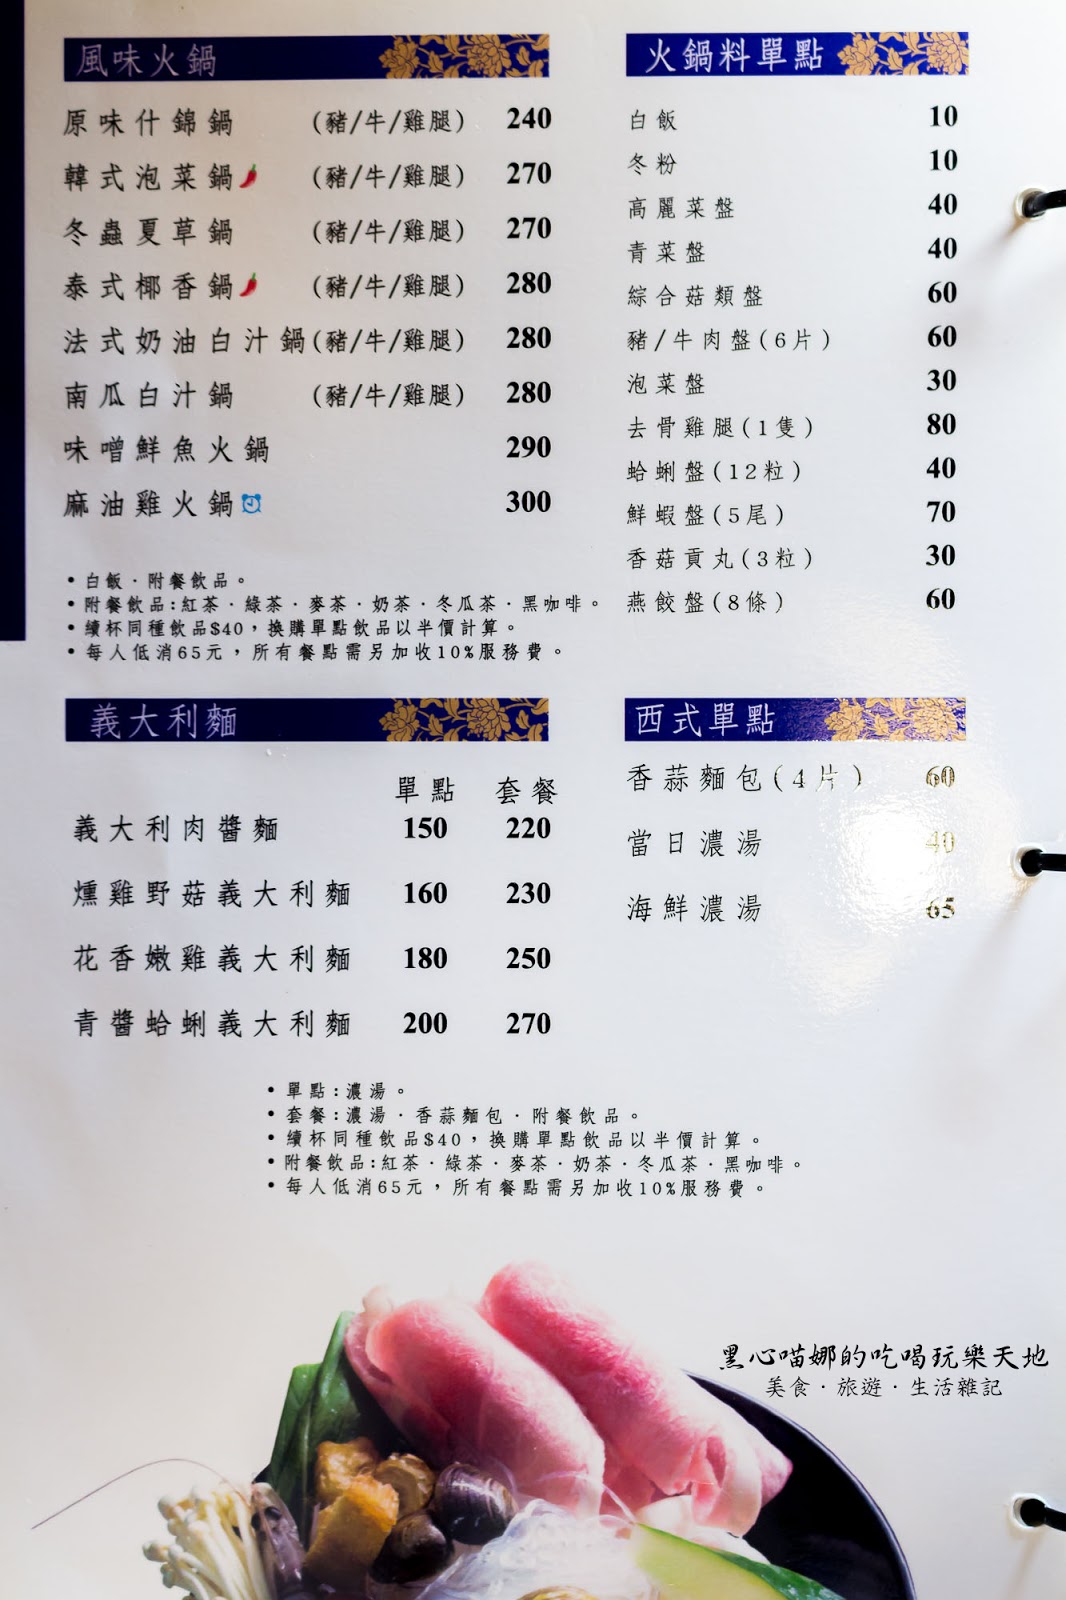 風味火鍋
原味什錦鍋 (豬/牛/雞腿) 240
韓式泡菜鍋 (豬/牛/雞腿) 270
冬蟲夏草鍋 (豬/牛/雞腿) 270
泰式椰香鍋 (豬/牛/雞腿) 280
法式奶油白汁鍋(豬/牛/雞腿) 280
南瓜白汁鍋 (豬/牛/雞腿) 280
味噌鮮魚火鍋 290
麻油雞火鍋 300
•白飯．附餐飲品。
•附餐飲品:紅茶．綠茶．麥茶．奶茶．冬瓜茶．黑咖啡。
•續杯同種飲品$40，換購單點飲品以半價計算。
•每人低消65元，所有餐點需另加收10%服務費。
火鍋料單點
白飯 10
冬粉 10
高麗菜盤 40
青菜盤 40
綜合菇類盤 60
豬/牛肉盤(6片) 60
泡菜盤 30
去骨雞腿(1隻) 80
蛤蜊盤(12粒) 40
鮮蝦盤(5尾) 70
香菇貢丸(3粒) 30
燕餃盤(8條) 60
義大利麵
單點 套餐
義大利肉醬麵 150 220
燻雞野菇義大利麵 160 230
花香嫩雞義大利麵 180 250
青醬蛤蜊義大利麵 200 270
•單點:濃湯。
•套餐:濃湯．香蒜麵包．附餐飲品。
•續杯同種飲品$40，換購單點飲品以半價計算。
•附餐飲品:紅茶．綠茶．麥茶．奶茶．冬瓜茶．黑咖啡。
•每人低消65元，所有餐點需另加收10%服務費。
西式單點
香蒜麵包(4片) 60
當日濃湯 40
海鮮濃湯 65
黑心喵娜的吃喝玩樂天地
美食．旅遊．生活雜記